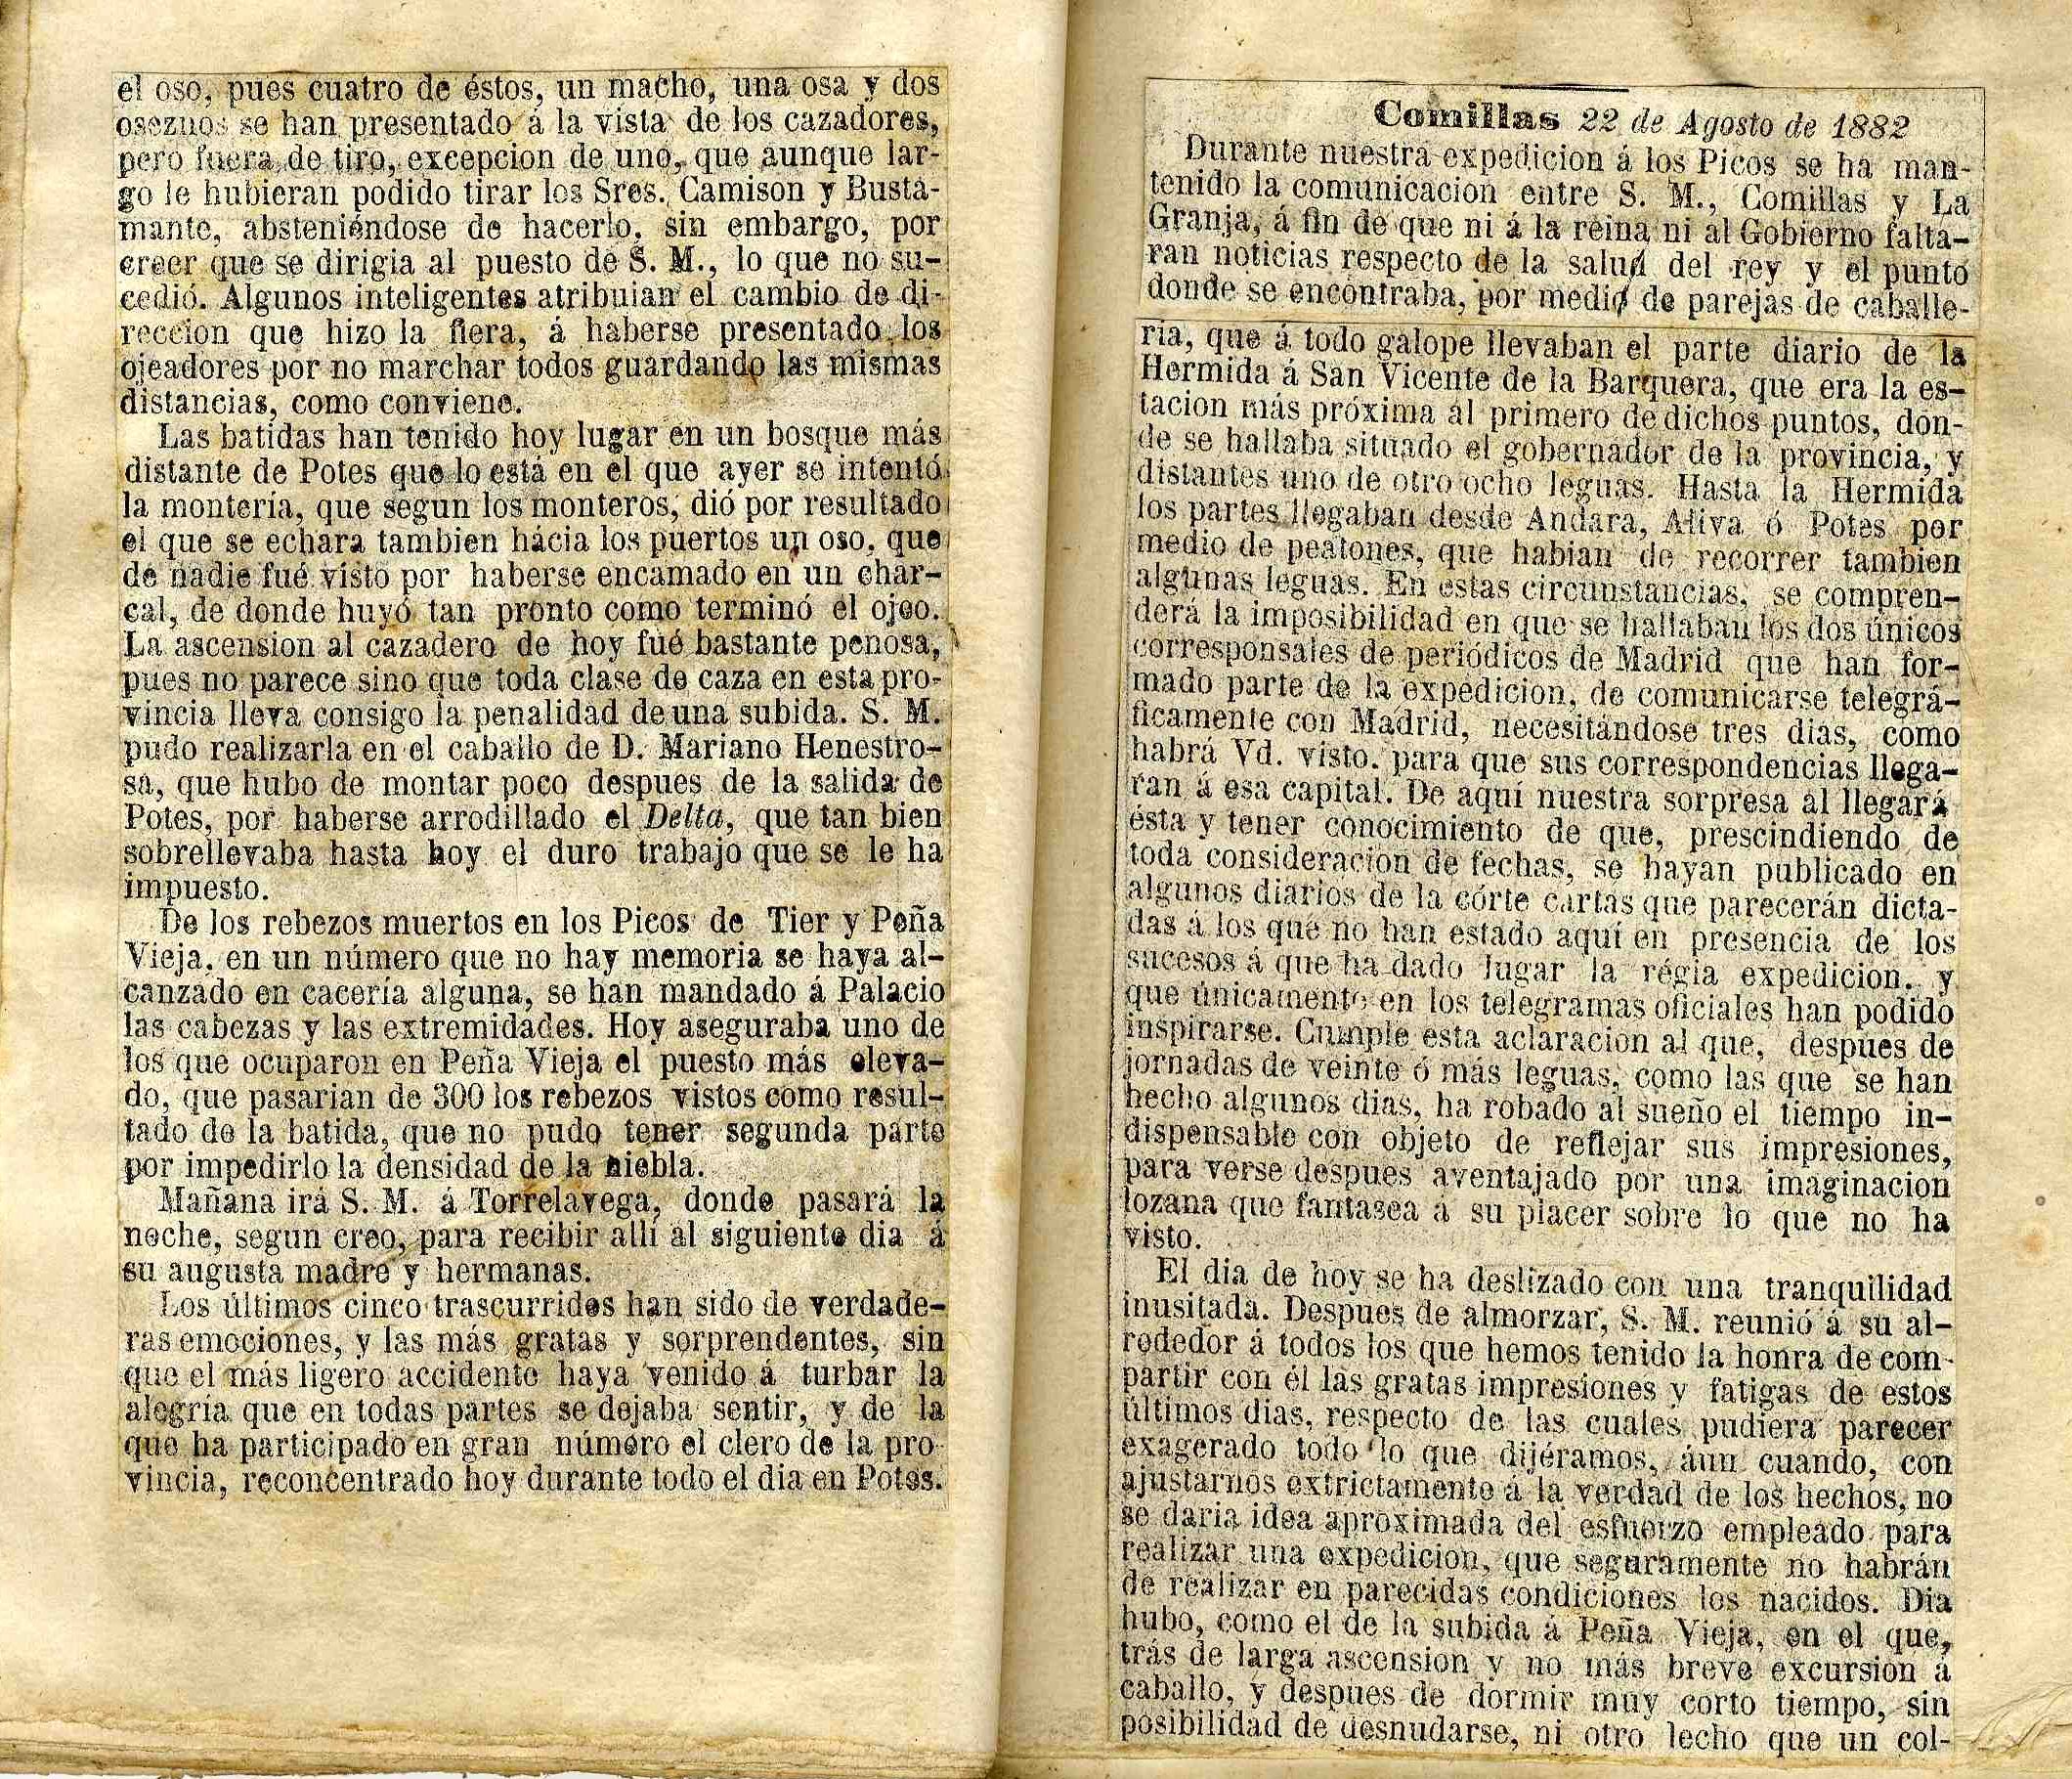 el oso, pues cuatro de éstos, un macho, una osa y dos
oseznos se han presentado á la vista de los cazadores,
pero fuera de tiro, excepcion de uno, que aunque lar-
go le hubieran podido tirar los Sres. Camison y Busta-
mante, absteniéndose de hacerlo, sin embargo, por
creer que se dirigia al puesto de S. M., lo que no su-
cedió. Algunos inteligentes atribuian el cambio de di-
reccion que hizo la fiera, á haberse presentado los
ojeadores por no marchar todos guardando las mismas
distancias, como conviene.
Las batidas han tenido hoy lugar en un bosque más
distante de Potes que lo está en el que ayer se intentó
la montería, que segun los monteros, dió por resultado
el que se echara tambien hácia los puertos un oso, que
de nadie fué visto por haberse encamado en un char-
cal, de donde huyó tan pronto como terminó el ojeo.
La ascension al cazadero de hoy fué bastante penosa,
pues no parece sino que toda clase de caza en esta pro-
vincia lleva consigo la penalidad de una subida. S. M.
pudo realizarla en el caballo de D. Mariano Henestro-
sa, que hubo de montar poco despues de la salida de
Potes, por haberse arrodillado el Delta, que tan bien
sobrellevaba hasta hoy el duro trabajo que se le ha
impuesto.
De los rebezos muertos en los Picos de Tier y Peña
Vieja, en un número que no hay memoria se haya al-
canzado en cacería alguna, se han mandado á Palacio
las cabezas y las extremidades. Hoy aseguraba uno de
los que ocuparon en Peña Vieja el puesto más eleva-
do, que pasarian de 300 los rebezos vistos como resul-
tado de la batida, que no pudo tener segunda parte
por impedirlo la densidad de la niebla.
Mañana irá S. M. á Torrelavega, donde pasará la
noche, segun creo, para recibir allí al siguiente dia á
su augusta madre y hermanas.
Los últimos cinco trascurridos han sido de verdade-
ras emociones, y las más gratas y sorprendentes, sin
que el más ligero accidente haya venido á turbar la
alegría que en todas partes se dejaba sentir, y de la
que ha participado en gran número el clero de la pro-
vincia, reconcentrado hoy durante todo el dia en Potes.
Comillas 22 de Agosto de 1882
Durante nuestra expedicion á los Picos se ha man-
tenido la comunicacion entre S. M., Comillas y La
Granja, á fin de que ni á la reina ni al Gobierno falta-
ran noticias respecto de la salud del rey y el punto
donde se encontraba, por medio de parejas de caballe-
ría, que á todo galope llevaban el parte diario de la
Hermida á San Vicente de la Barquera, que era la es-
tacion más próxima al primero de dichos puntos, don-
de se hallaba situado el gobernador de la provincia, y
distantes uno de otro ocho leguas. Hasta la Hermida
los partes llegaban desde Andara, Aliva ó Potes por
medio de peatones, que habian de recorrer tambien
algunas leguas. En estas circunstancias, se compren-
derá la imposibilidad en que se hallaban los dos únicos
corresponsales de periódicos de Madrid que han for-
mado parte de la expedicion, de comunicarse telegrá-
ficamente con Madrid, necesitándose tres dias, como
habrá Vd. visto, para que sus correspondencias llega-
ran á esa capital. De aquí nuestra sorpresa al llegar á
ésta y tener conocimiento de que, prescindiendo de
toda consideracion de fechas, se hayan publicado en
algunos diarios de la córte cartas que parecerán dicta-
das á los que no han estado aquí en presencia de los
sucesos á que ha dado lugar la régia expedicion, y
que únicamente en los telegramas oficiales han podido
inspirarse. Cumple esta aclaracion al que, despues de
jornadas de veinte ó más leguas, como las que se han
hecho algunos dias, ha robado al sueño el tiempo in-
dispensable con objeto de reflejar sus impresiones,
para verse despues aventajado por una imaginacion
lozana que fantasea á su placer sobre lo que no ha
visto.
El dia de hoy se ha deslizado con una tranquilidad
inusitada. Despues de almorzar, S. M. reunió á su al-
rededor á todos los que hemos tenido la honra de com-
partir con él las gratas impresiones y fatigas de estos
últimos dias, respecto de las cuales pudiera parecer
exagerado todo lo que dijéramos, áun cuando, con
ajustarnos extrictamente á la verdad de los hechos, no
se daria idea aproximada del esfuerzo empleado para
realizar una expedicion, que seguramente no habrán
de realizar en parecidas condiciones los nacidos. Dia
hubo, como el de la subida á Peña Vieja, en el que,
trás de larga ascension y no más breve excursion á
caballo, y despues de dormir muy corto tiempo, sin
posibilidad de desnudarse, ni otro lecho que un col-